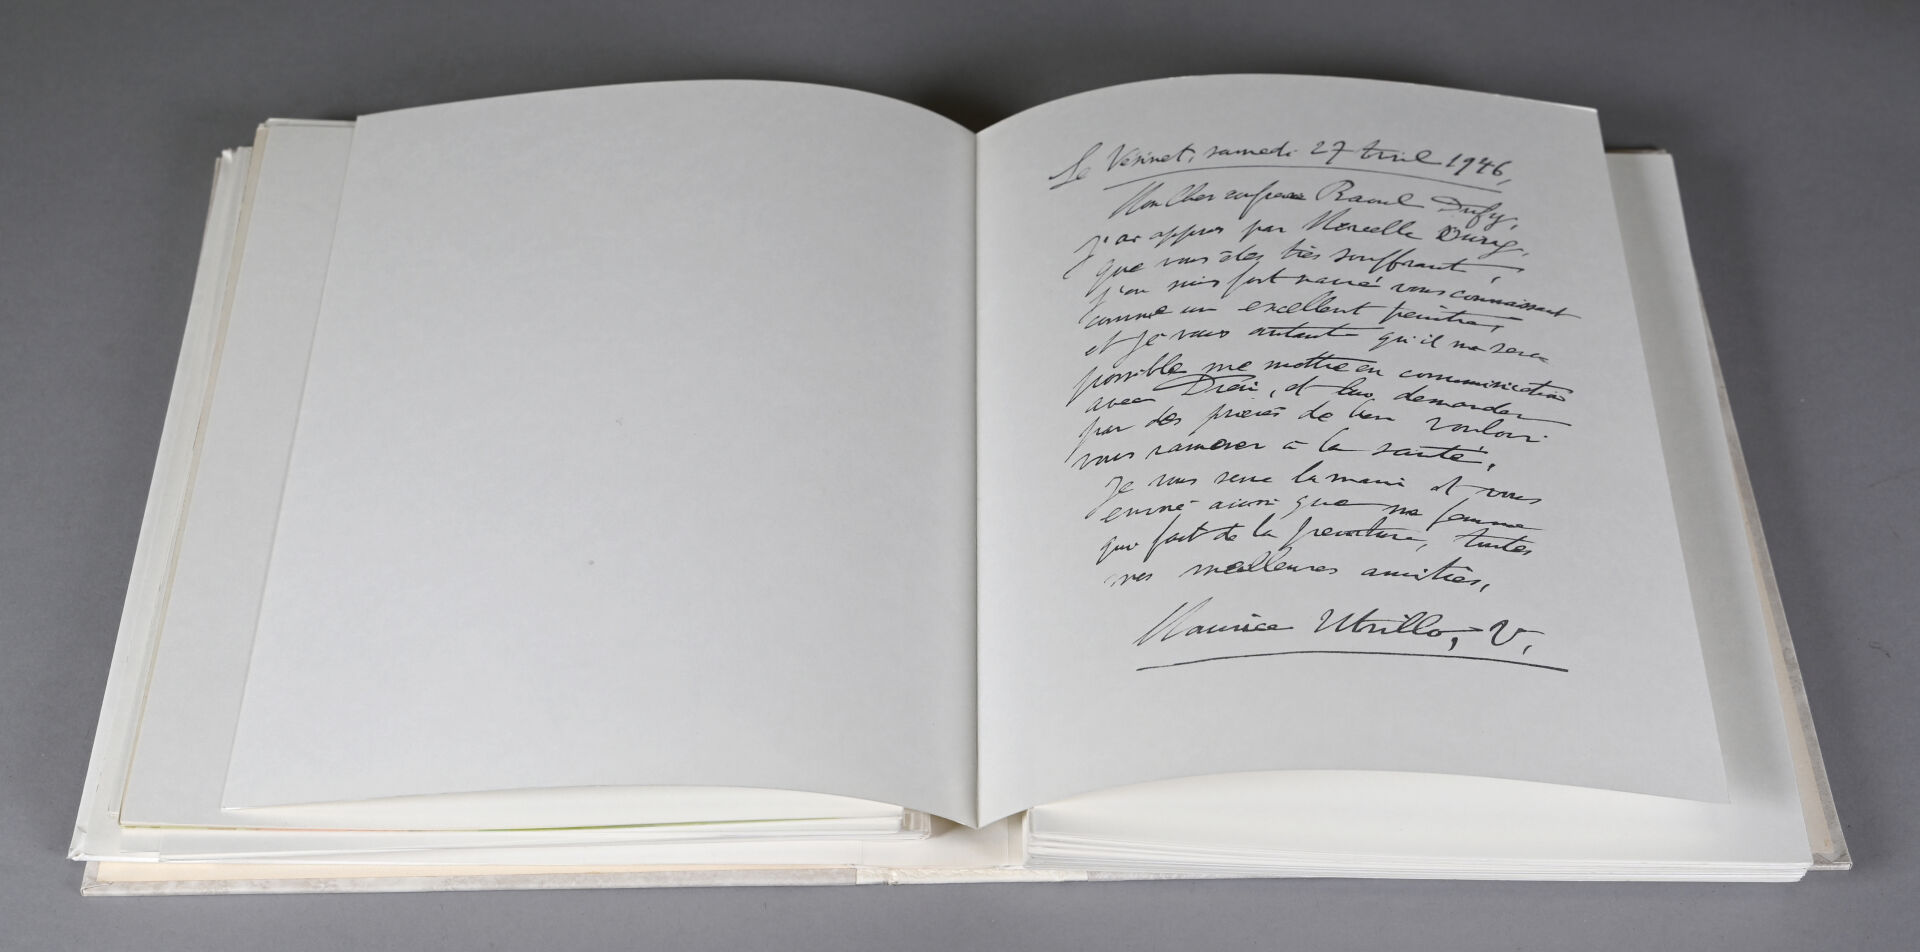 Le Vésinet, samedi 27 Avril 1946,
Mon Cher confrère Raoul Dufy,
j'ai appris par Marcelle Oury,
que vous êtes très souffrant,
j'en suis fort navré vous connaissant
comme un excellent peintre,
et je vous autant qu'il me sera
possible me mettre en communication
avec Dieu, et lui demander
par des prières de bien vouloir
vous ramener à la santé,
Je vous serre la main et vous
envoie ainsi que ma femme
qui fait de la peinture, toutes
mes meilleures amitiés,
Maurice Utrillo, V,